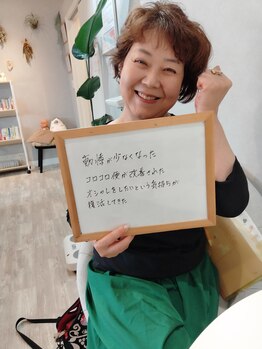 動悸が少なくなった
コロコロ便が改善された
オシャレをしたいという気持ちが
復活してきた